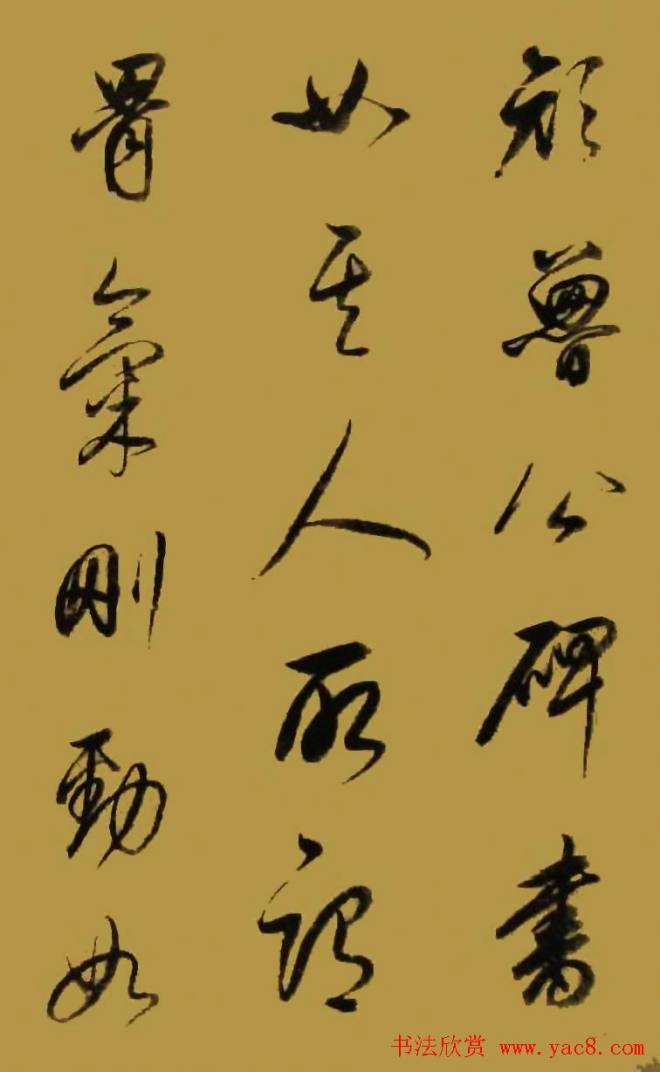 顔魯公碑書
如其人所謂
骨氣剛勁如
书法欣赏 www.yac8.com